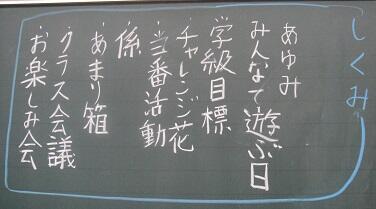 しくみ
あゆみ
みんなで遊ぶ日
学級目標
チャレンジ花
当番活動
係
あまり箱
クラス会議
お楽しみ会